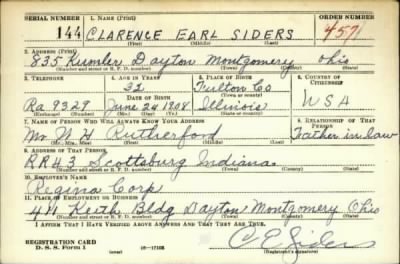 SERIAL NUMBER 1. NAME (Print) ORDER NUMBER
144 CLARENCE EARL SIDERS 457
(First) (Middle) (Last)
2. ADDRESS (Print)
835 Kumler Dayton Montgomery Ohio
(Number and street or R. F. D. number) (Town) (County) (State)
3. TELEPHONE 4. AGE IN YEARS 5. PLACE OF BIRTH 6. COUNTRY OF CITIZENSHIP
32 Fulton Co
DATE OF BIRTH (Town or county)
Ra 9329 June 24 1908 Illinois USA
(Exchange) (Number) (Mo.) (Day) (Yr.) (State or country)
7. NAME OF PERSON WHO WILL ALWAYS KNOW YOUR ADDRESS 8. RELATIONSHIP OF THAT PERSON
Mr N H Rutherford Father in law
(Mr., Mrs., Miss) (First) (Middle) (Last)
9. ADDRESS OF THAT PERSON
RR#3 Scottsburg Indiana
(Number and street or R. F. D. number) (Town) (County) (State)
10. EMPLOYER'S NAME
Regina Corp
11. PLACE OF EMPLOYMENT OR BUSINESS
411 Keith Bldg Dayton Montgomery Ohio
(Number and street or R. F. D. number) (Town) (County) (State)
I AFFIRM THAT I HAVE VERIFIED ABOVE ANSWERS AND THAT THEY ARE TRUE.
C E Siders
REGISTRATION CARD
D. S. S. Form 1 (over) 16—17105 (Registrant's signature)